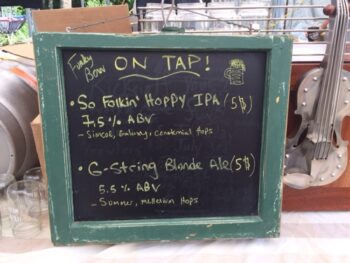 Funky Bow
ON TAP!
• So Folkin' Hoppy IPA (5$)
7.5% ABV
- Simcoe, Galaxy, Centennial Hops
• G-String Blonde Ale (5$)
5.5% ABV
- Summer, Hops